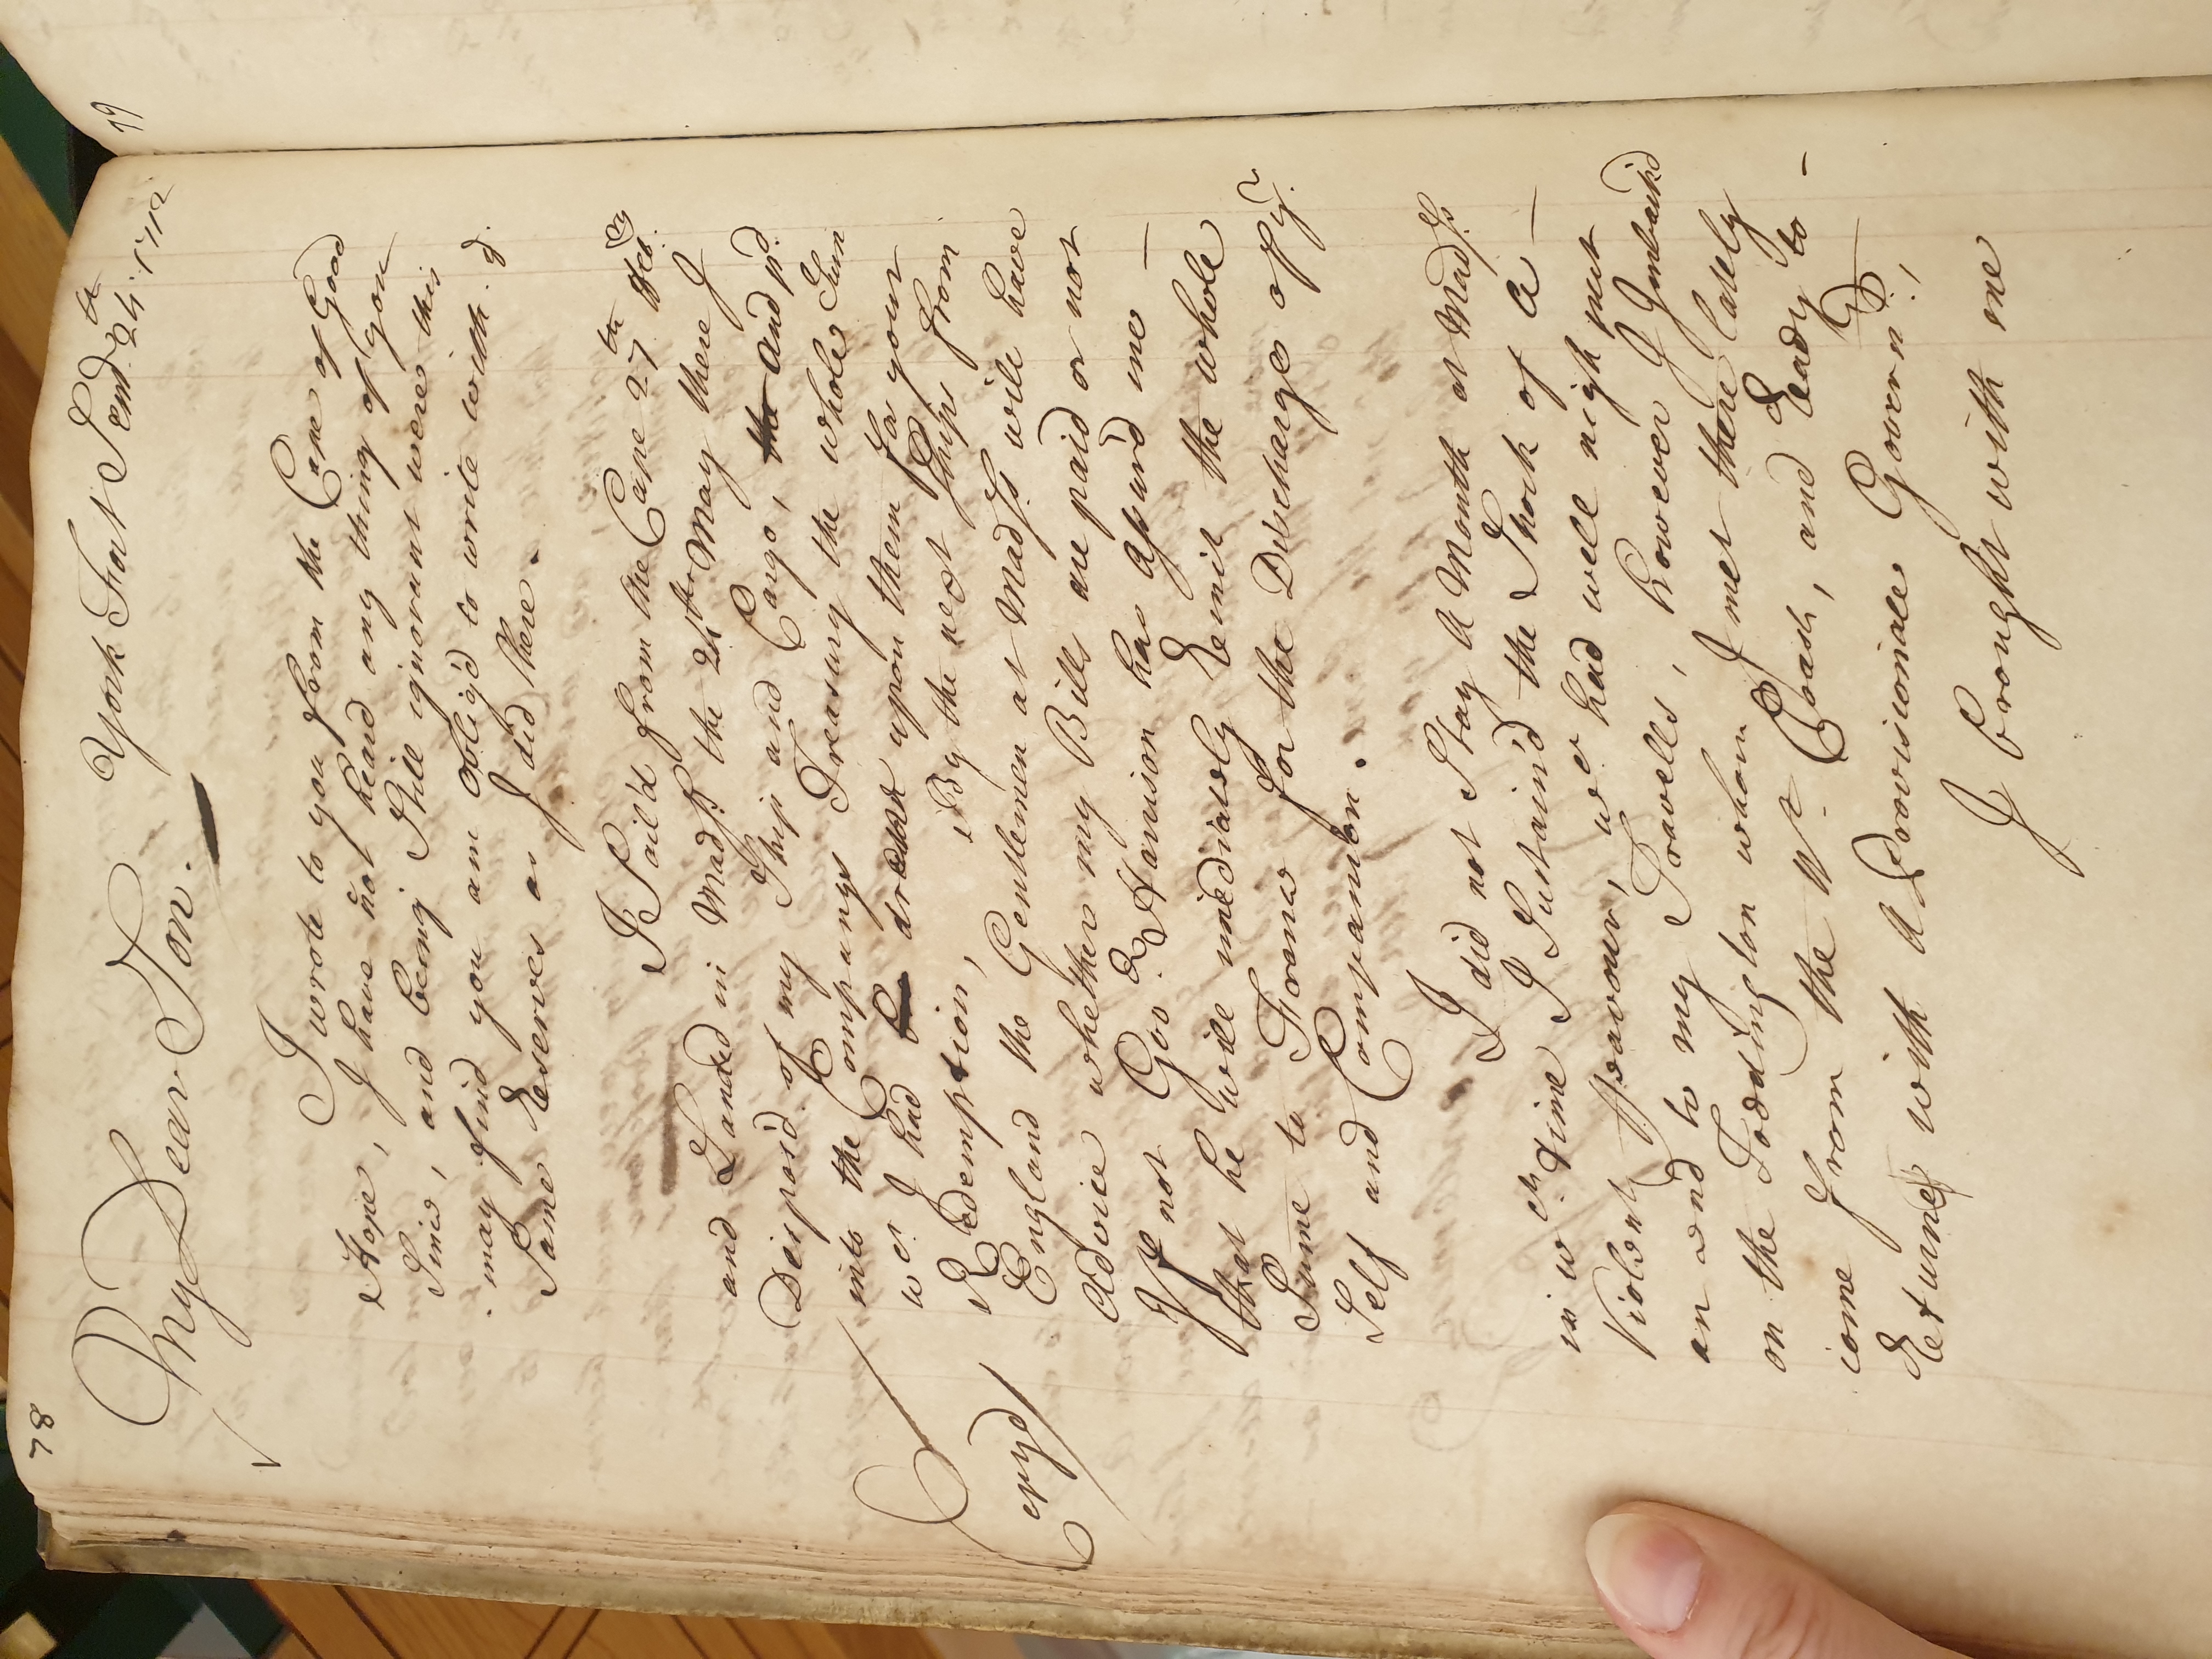 78
My Dear Son. York Fort Septr. 24th. 1712
I wrote to you from the Cape of Good
Hope, I have not heard any thing of you
Since, and being Still ignorant where this
may find you am oblig'd to write with. ye.
Same Reserves as I did there.
I Sail'd from the Cape 27th Feb:ry
and Landed in Madrs. the 24th May there I
Dispos'd of my Ship and Cargo, the and pd.
into the Companys Treasury the whole Sum
wch I had drawn upon them for your
Redemption, By the next Ships from
England the Gentlemen at Madrs. will have
Advice whether my Bills are paid or not
If not Govr. Harrison has assur'd me —
that he will imediately Remit the whole
Sume to France for the Discharge of yr.
Self and Companion.
Copyd
I did not Stay a Month at Madrs.
in wch. time I Sustain'd the Shock of a —
Violent Feavour, wch had well nigh put
an end to my Travells, however I Imbark'd
on the Toddington whom I met there lately
come from the Wt. Coast, and Ready to —
Returne with a Provisionale Governr.,
I brought with me
79